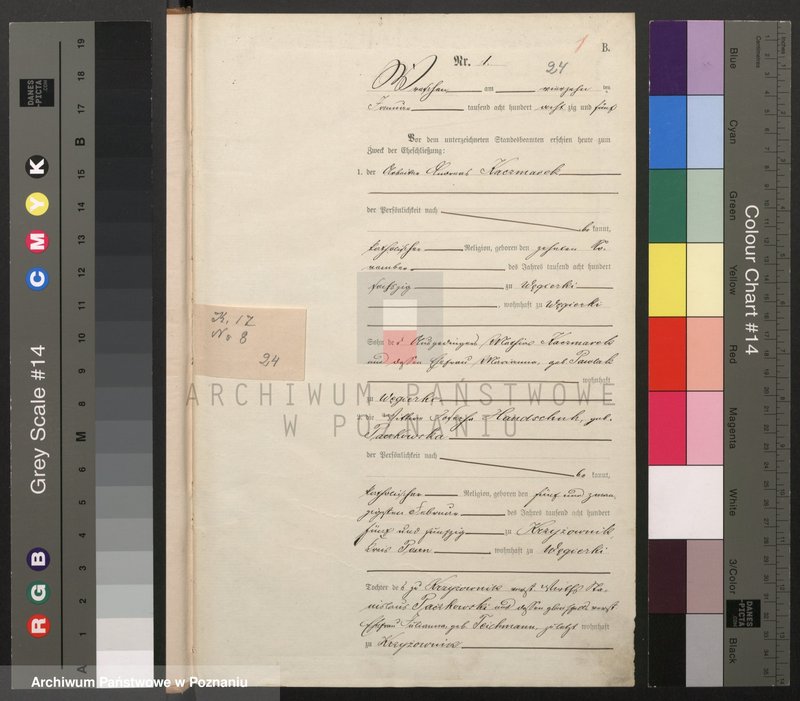 B.
1
Nr. 1.
24
Wreschen am vierzehn ten
Januar tausend acht hundert acht zig und fünf
Vor dem unterzeichneten Standesbeamten erschien heute zum
Zweck der Eheschließung:
1. der Arbeiter Andreas Kaczmarek
der Persönlichkeit nach
be kannt,
katholischer Religion, geboren den zehnten No-
vember des Jahres tausend acht hundert
sechszig zu Węgierki
, wohnhaft zu Węgierki
Sohn des Ausgedingers Mathias Kaczmarek
und dessen Ehefrau Marianna, geb. Pawlak
wohnhaft
zu Węgierki
2. die Wittwe Handschuk, geb.
Paczkowska
der Persönlichkeit nach
be kannt,
katholischer Religion, geboren den fünf und zwan-
zigsten Februar des Jahres tausend acht hundert
fünf und fünfzig zu Krzyżownik
Kreis wohnhaft zu Węgierki
Tochter des zu Krzyżownik verst. Wirths Sta-
nislaus Paczkowski und dessen gleichfalls verst.
Ehefrau geb. Teichmann, zuletzt wohnhaft
zu Krzyżownik
K. 17
No 8
24
ARCHIWUM PAŃSTWOWE
W POZNANIU
Archiwum Państwowe w Poznaniu
Grey Scale #14
R G B
C M Y K
A 1 2 3 4 5 6 M 8 9 10 11 12 13 14 15 B 17 18 19
DANES
PICTA
.COM
Colour Chart #14
Blue
Cyan
Green
Yellow
Red
Magenta
White
3/Color
Black
Centimetres
Inches
DANES
PICTA
.COM